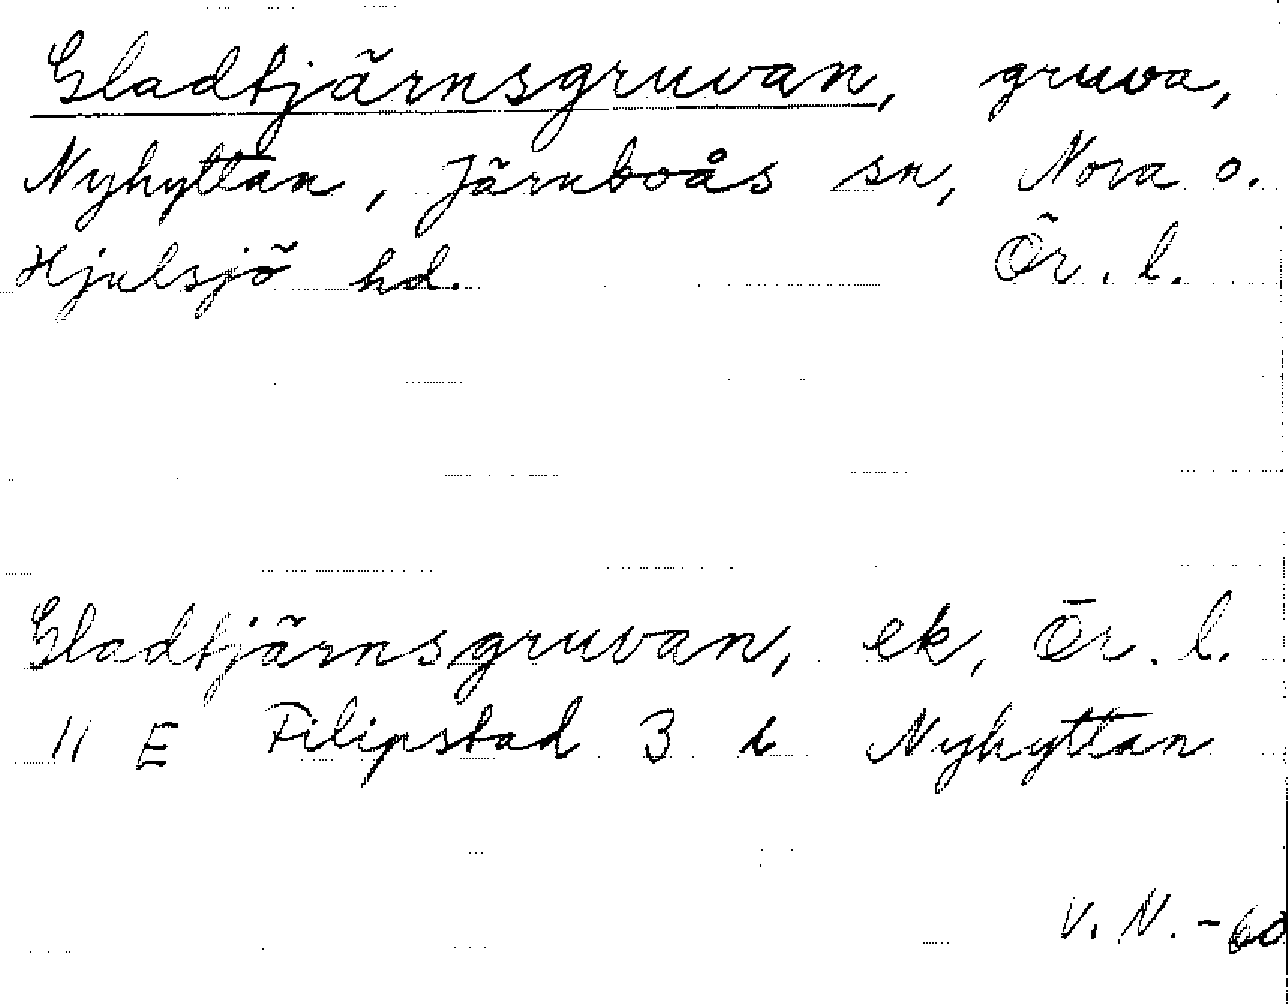 Gladtjärnsgruvan, gruva,
Nyhyttan, Järnboås sn, Nora o.
Hjulsjö hd. Ör. l.
Gladtjärnsgruvan, ek, Ör. l.
11 E Filipstad 3 i Nyhyttan
V. N. - 60